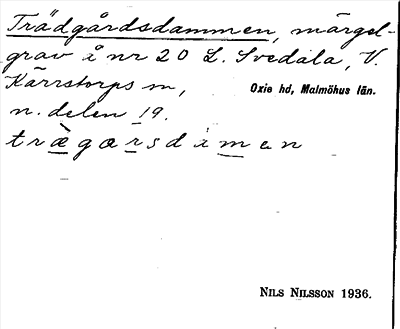 Trädgårdsdammen, märgel-
grav å nr 20 L. Svedala, V.
Kärrstorps m, Oxie hd, Malmöhus län.
n. delen 19.
trægarsdamen
NILS NILSSON 1936.